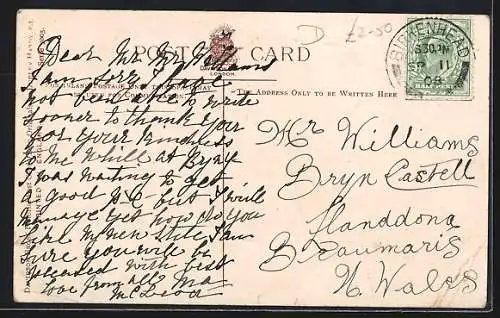 D £2-50
POST CARD
LONDON.
BIRKENHEAD
8.30 PM
SP 11
08
HALFPENNY
The Address Only to be Written Here
Dear Mr Mrs Williams
I am sorry I have
not been able to write
sooner to thank you
for your kindness
to me while at Bryn
I was waiting to get
a good p.c but I will
manage yet how do you
like my new style I am
sure you will be
pleased with best
love from all Ma
McLeod
Mr Williams
Bryn Castell
Llanddona
Beaumaris
N. Wales